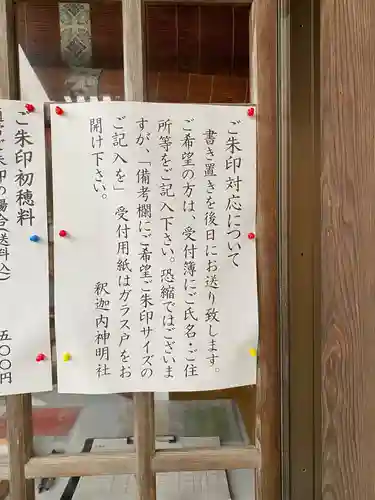 ご朱印対応について
書き置きを後日にお送り致します。
ご希望の方は、受付簿にご氏名・ご住
所等をご記入下さい。恐縮ではございま
すが、「備考欄にご希望ご朱印サイズの
ご記入を」　受付用紙はガラス戸をお
開け下さい。
釈迦内神明社
ご朱印初穂料
ご朱印の場合(送料込)
五〇〇円